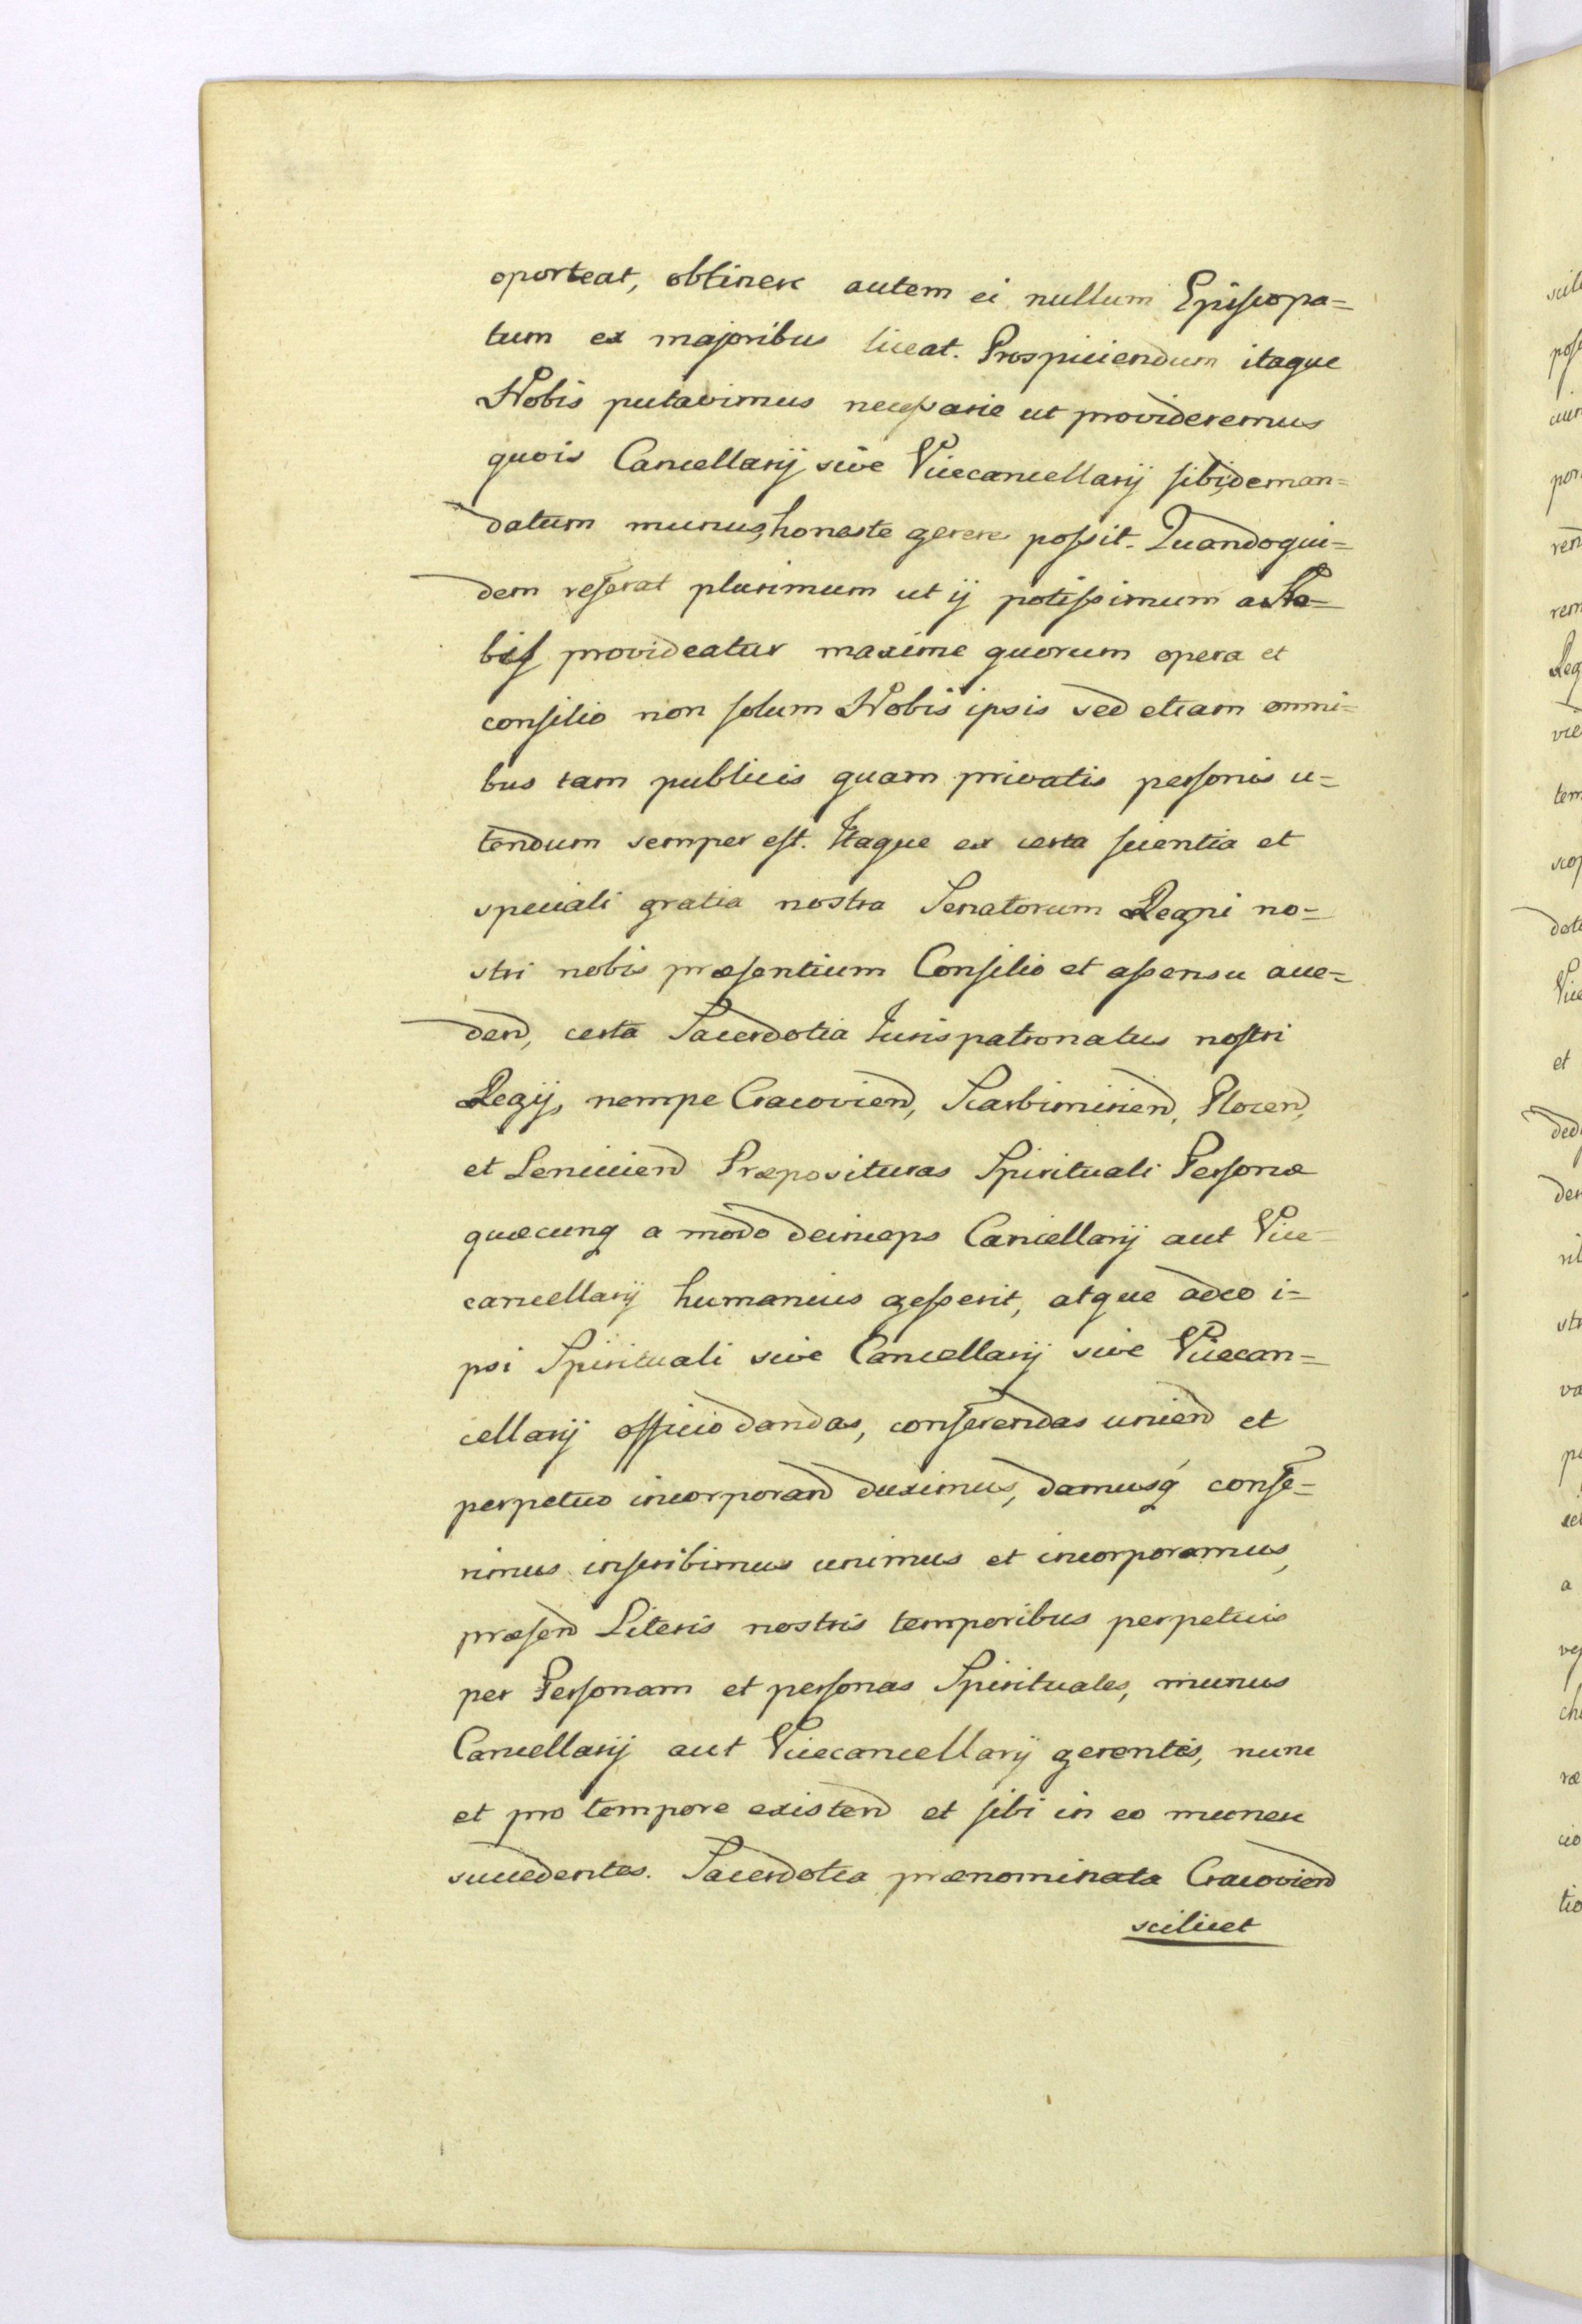 oporteat, obtinere autem ei nullum Episcopa=
tum ex majoribus liceat. Prospiciendum itaque
Nobis putavimus necessarie ut provideremus
quois Cancellarij sive Vicecancellarij sibi deman=
datum munus, honeste gerere possit. Quandoqui=
dem referat plurimum ut ij potissimum a No=
bis provideatur maxime quorum opera et
consilio non solum Nobis ipsis sed etiam omni=
bus tam publicis quam privatis personis u=
tendum semper est. Itaque ex certa scientia et
speciali gratia nostra Senatorum Regni no=
stri nobis præsentium Consilio et assensu acce=
den, certa Sacerdotia Iurispatronatus nostri
Regij, nempe Cracovien, Scarbimirien, Plocen,
et Lencicien Præposituras Spirituali Personæ
quæcunq a modo deinceps Cancellarij aut Vice=
cancellarij humanius gesserit, atque adeo i=
psi Spirituali sive Cancellarij sive Vicecan=
cellarij officio dandas, conferendas unien et
perpetuo incorporan duximus, damusq confe=
rimus inscribimus unimus et incorporamus,
præsen Literis nostris temporibus perpetuis
per Personam et personas Spirituales, munus
Cancellarij aut Vicecancellarij gerentes, nunc
et pro tempore existen et sibi in eo munere
succedentes. Sacerdotia prænominata Cracovien
scilicet